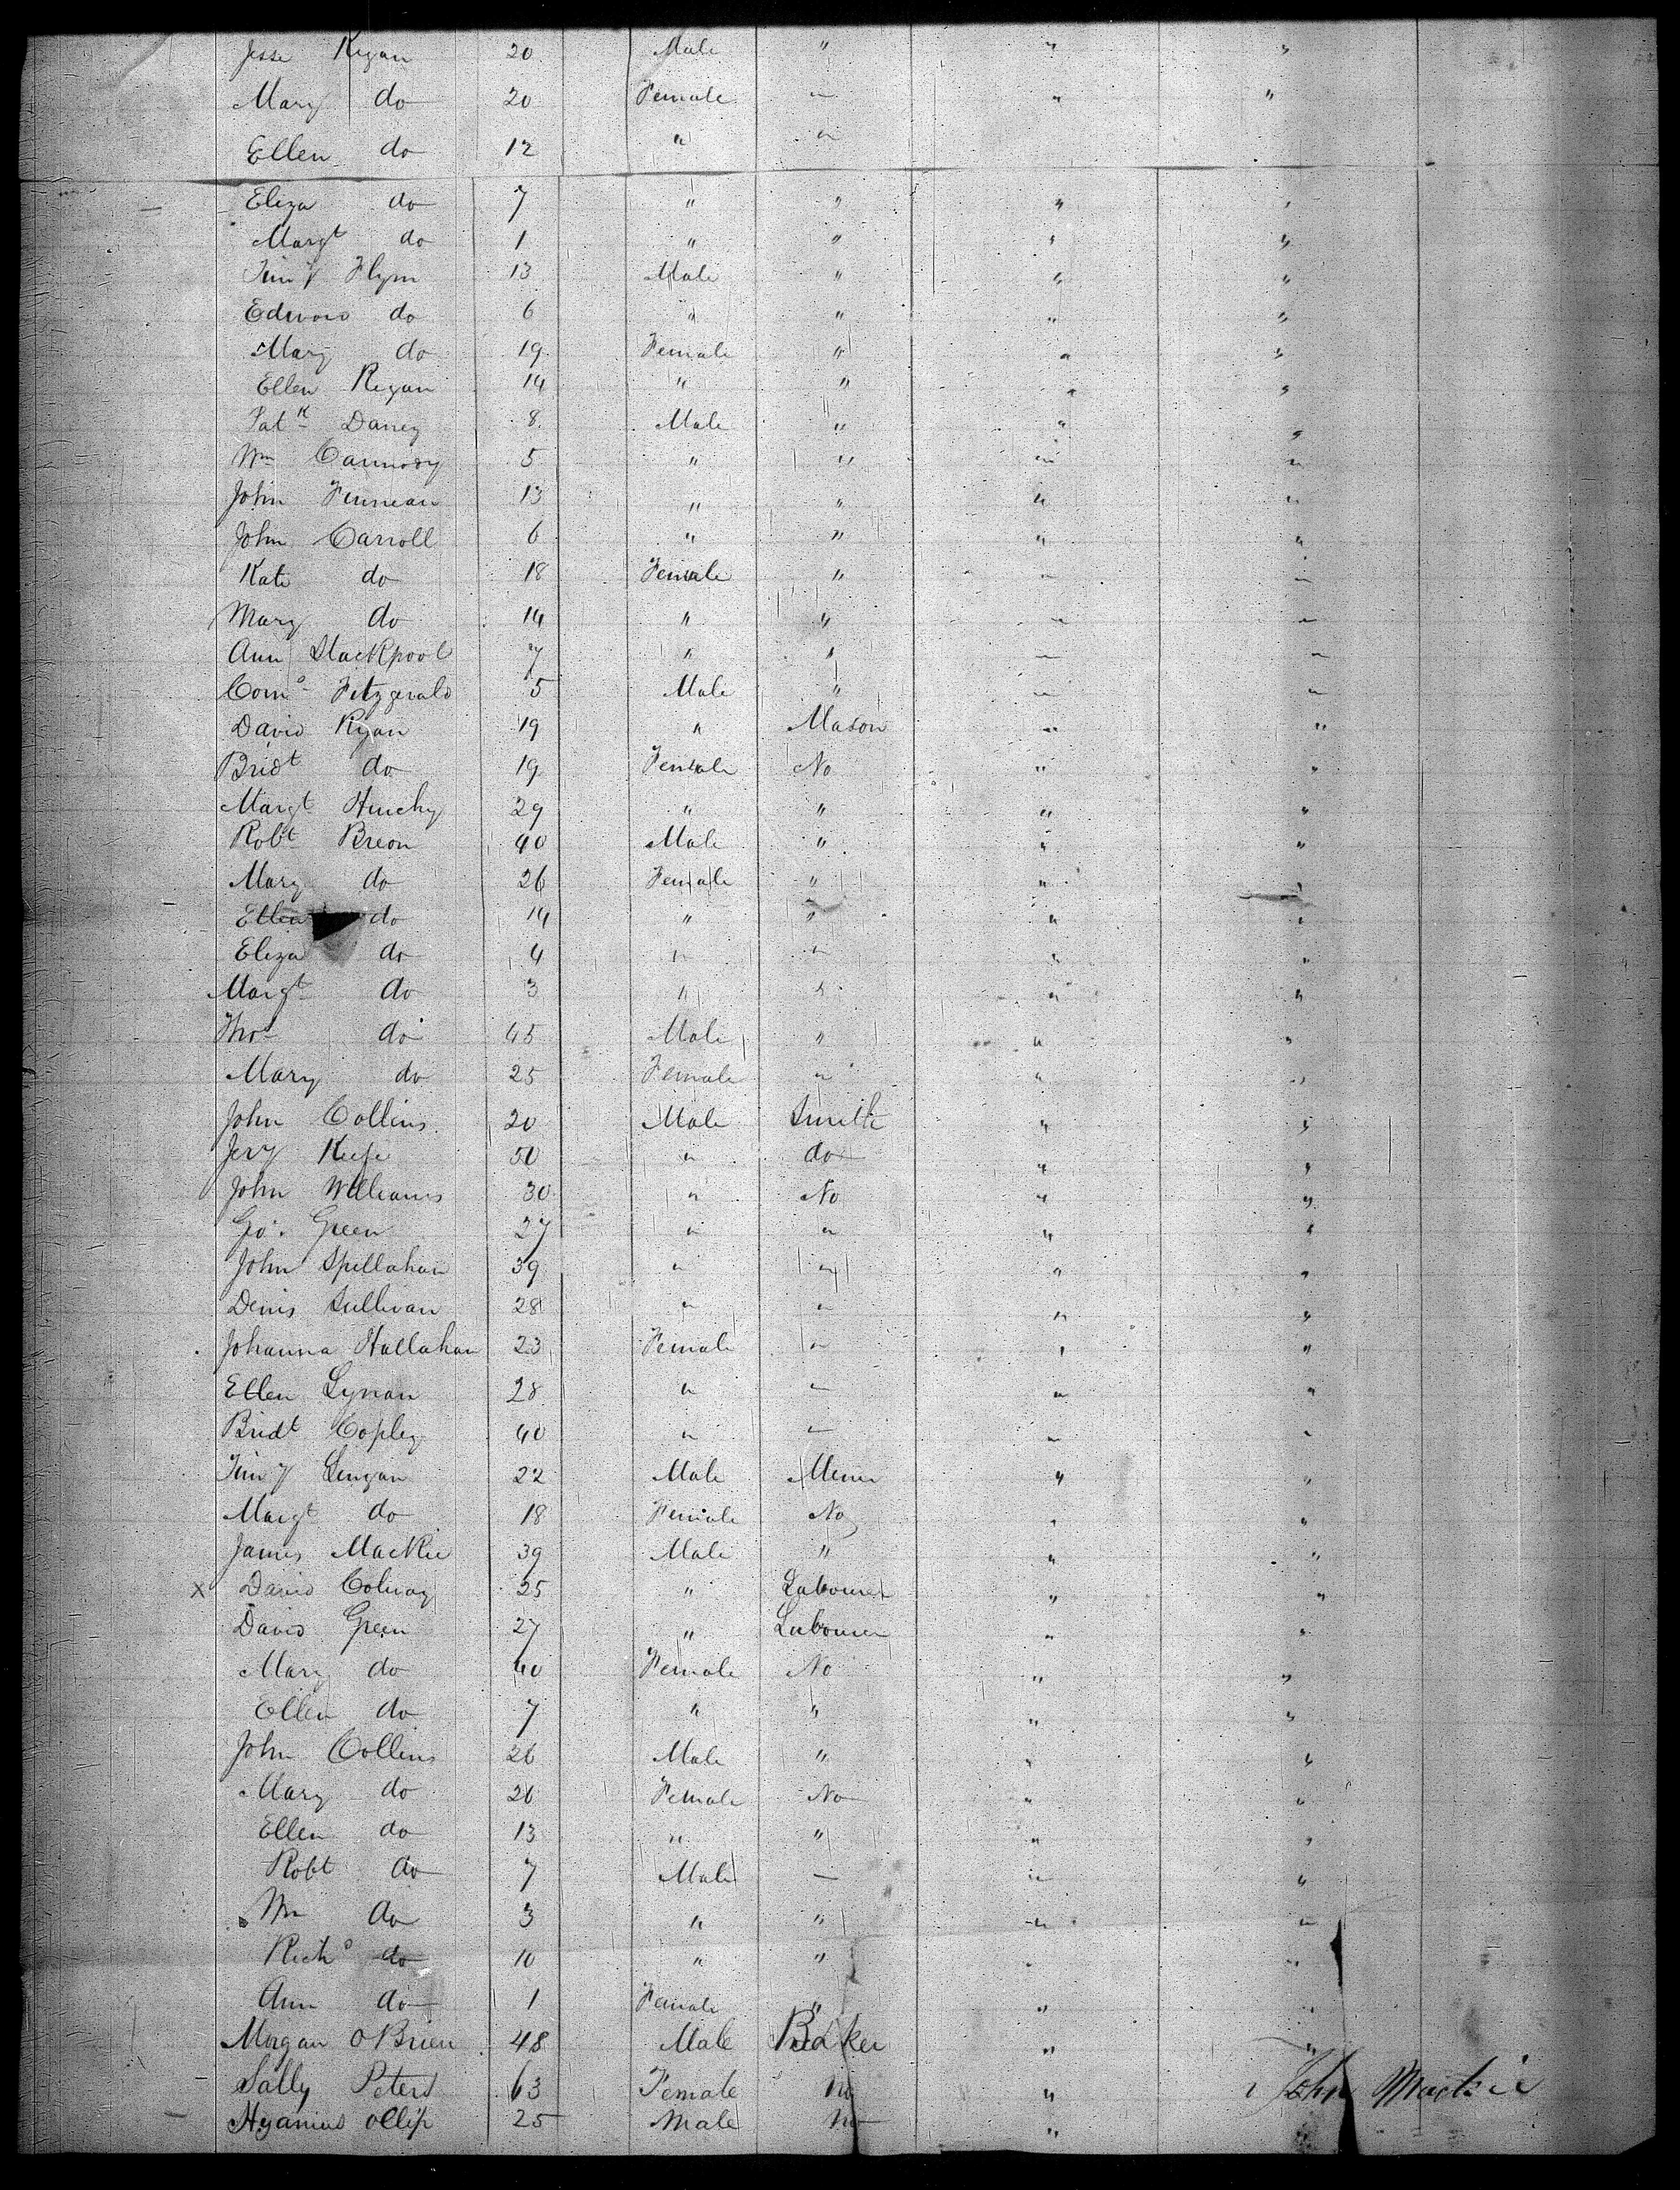 Jesse Regan 20 Male " " "
Mary do 20 Female " " "
Ellen do 12 " " " "
Eliza do 7 " " " "
Margt do 1 " " " "
Timy Flynn 13 Male " " "
Edward do 6 " " " "
Mary do 19 Female " " "
Ellen Regan 14 " " " "
Patk Daney 8 Male " " "
Wm Carmody 5 " " " "
John Finnean 13 " " " "
John Carroll 6 " " " "
Kate do 18 Female " " "
Mary do 14 " " " "
Ann Stackpool 7 " " " "
Corns Fitzgerald 5 Male " " "
David Ryan 19 " Mason " "
Bridt do 19 Female No " "
Margt Hinchy 29 " " " "
Robt Breon 40 Male " " "
Mary do 26 Female " " "
Ellen do 14 " " " "
Eliza do 4 " " " "
Margt do 3 " " " "
Thos do 45 Male " " "
Mary do 25 Female " " "
John Collins 20 Male Smith " "
Jery Keefe 50 " do " "
John Williams 30 " No " "
Geo. Green 27 " " " "
John Spellahan 39 " " " "
Denis Sullivan 28 " " " "
Johanna Hallahan 23 Female " " "
Ellen Lynan 28 " " " "
Bridt Copley 40 " " " "
Timy Lengan 22 Male Miner " "
Margt do 18 Female No " "
James MacKie 39 Male " " "
x David Colway 25 " Labourer " "
David Green 27 " Labourer " "
Mary do 40 Female No " "
Ellen do 7 " " " "
John Collins 26 Male " " "
Mary do 26 Female No " "
Ellen do 13 " " " "
Robt do 7 Male " " "
Wm do 3 " " " "
Richd do 10 " " " "
Ann do 1 Female " " "
Morgan OBrien 48 Male Baker " "
Sally Peters 63 Female no " John Mackie
25 Male no "